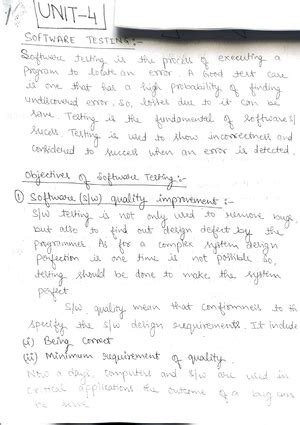 UNIT-4
SOFTWARE TESTING:-
Software testing is the process of executing a
program to locate an error. A Good test case
is one that has a high probability of finding
undiscovered error. So, losses due to it can be
save. Testing is the fundamental of software S/
sucess. Testing is used to show incorrectness and
considered to success when an error is detected.
Objectives of Software Testing:-
① Software (S/w) quality improvement:-
S/w testing is not only used to remove bugs
but also to find out design defect by the
programmer. As for a complex system design
perfection is one time is not possible so,
testing should be done to make the system
perfect.
S/w quality mean that confirmness to the
specify the S/w design requirements. It include
(i) Being correct
(ii) Minimum requirement of quality.
Now a days, computers and S/w are used in
critical applications the outcome of a bug can